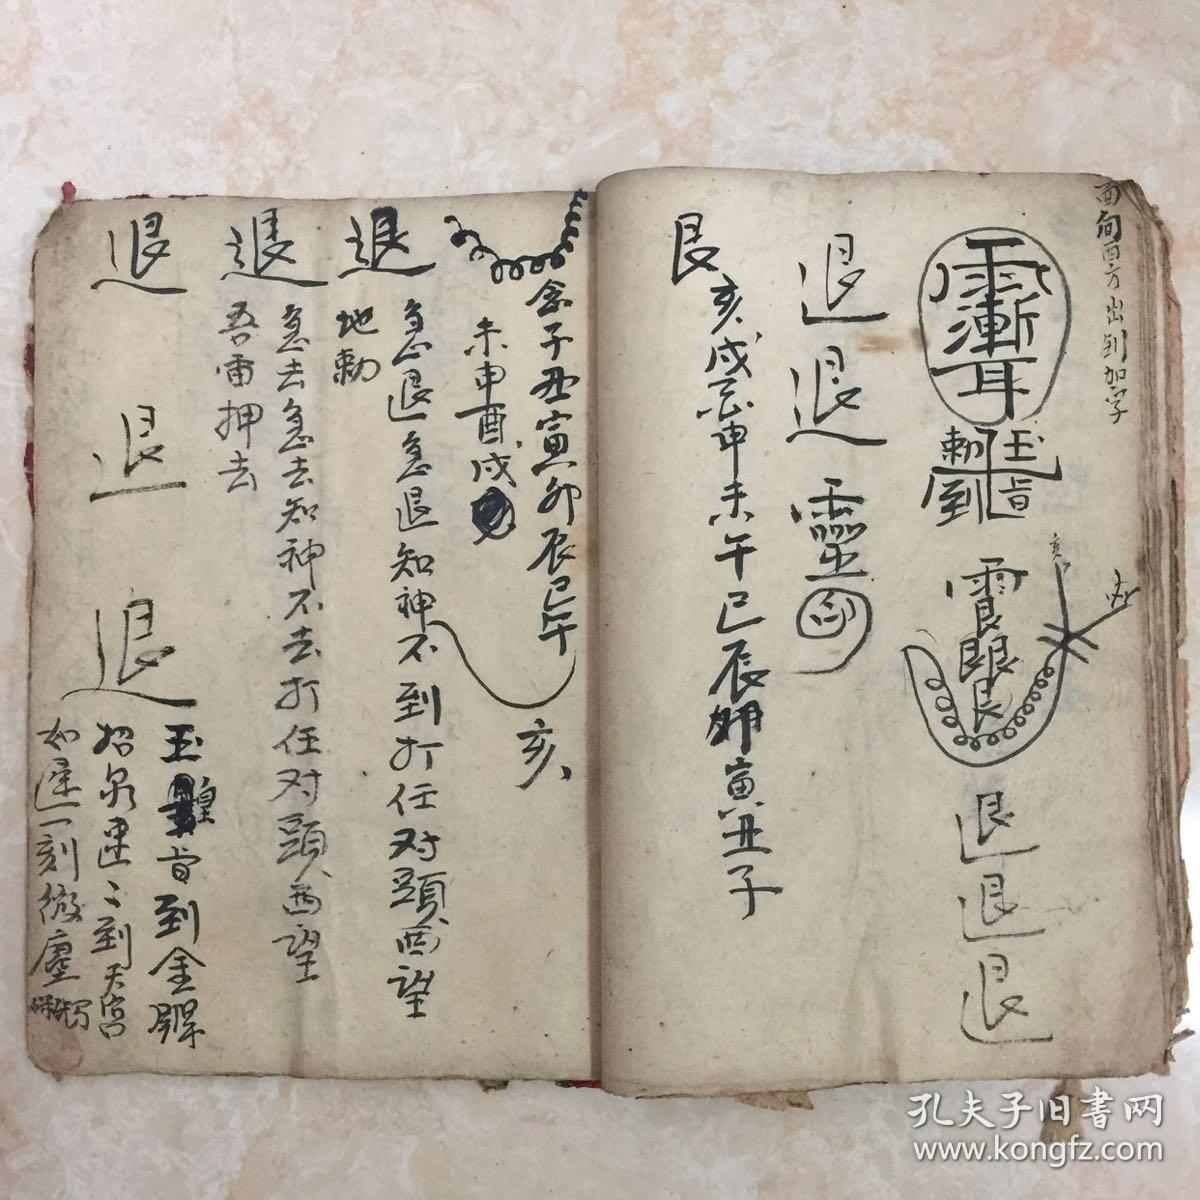 面向西方出到加字
玉旨
勅到
退
退
退
退
退
靈
艮
亥戌酉申未午巳辰卯寅丑子
念子丑寅卯辰巳午
未申酉戌
亥
退
急退急退知神不到打任对頭西望
地勅
退
急去急去知神不去打任对頭西望
吾雷押去
退
退
退
玉皇旨到金
招泉速々到天宮
如遲一刻微塵
孔夫子旧书网
www.kongfz.com